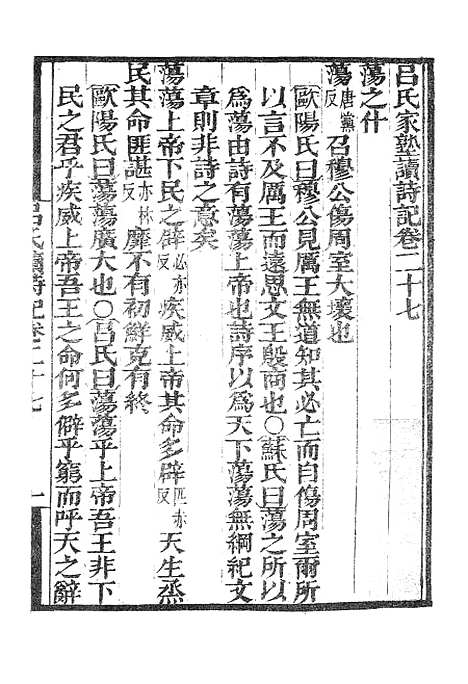 吕氏家塾讀詩記卷二十七
蕩之什
蕩唐黨反召穆公傷周室大壞也
歐陽氏曰穆公見厲王無道知其必亡而自傷周室爾所
以言不及厲王而遠思文王殷商也〇蘇氏曰蕩之所以
爲蕩由詩有蕩蕩上帝也詩序以爲天下蕩蕩無綱紀文
章則非詩之意矣
蕩蕩上帝下民之辟必亦反疾威上帝其命多辟匹亦反天生烝
民其命匪諶市林反靡不有初鮮克有終
歐陽氏曰蕩蕩廣大也〇吕氏曰蕩蕩乎上帝吾王非下
民之君乎疾威上帝吾王之命何多僻乎窮而呼天之辭
吕氏讀詩記卷二十七 一